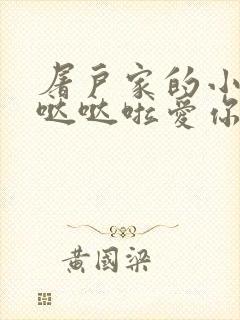 屠户家的小
哒哒啦爱你
黄國梁